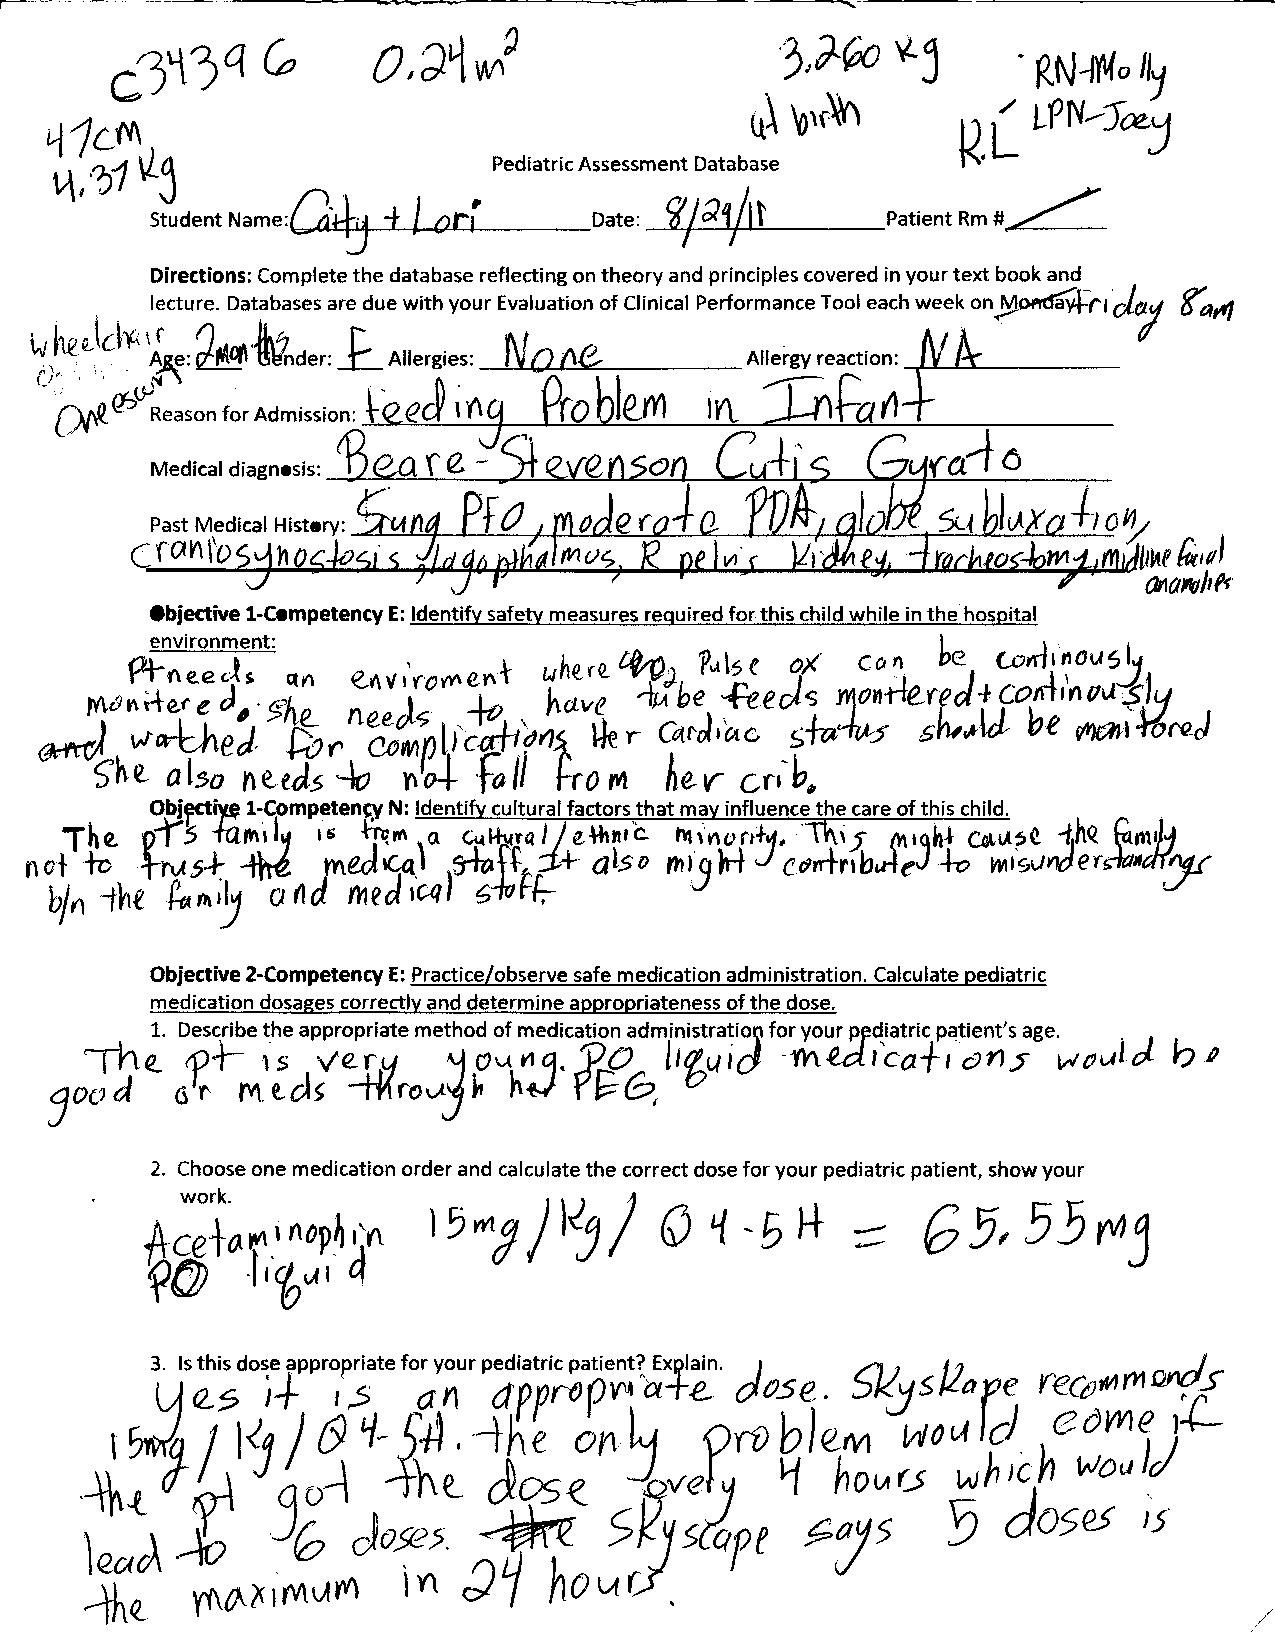 c34396 0.24m² 3.260 kg RN-Molly
47cm at birth R.L LPN-Joey
4.37 kg Pediatric Assessment Database
Student Name: Catty + Lori Date: 8/29/11 Patient Rm #
Directions: Complete the database reflecting on theory and principles covered in your text book and
lecture. Databases are due with your Evaluation of Clinical Performance Tool each week on Monday Friday 8am
wheelchair
Age: 2 months Gender: F Allergies: None Allergy reaction: NA
One
Reason for Admission: Feeding Problem in Infant
Medical diagnosis: Beare-Stevenson Cutis Gyrato
Past Medical History: PFO, moderate PDA, globe subluxation,
craniosynostosis, lagopthalmos, R pelvis kidney, tracheostomy, midline facial
Objective 1-Competency E: Identify safety measures required for this child while in the hospital
environment:
Pt needs an enviroment where Pulse ox can be continously
monitered. She needs to have tube feeds montered + continously
and watched for complications Her Cardiac status should be monitored
She also needs to not fall from her crib.
Objective 1-Competency N: Identify cultural factors that may influence the care of this child.
The pt's family is from a cultural/ethnic minority. This might cause the family
not to trust the medical staff. It also might contribute to misunderstandings
b/n the family and medical staff.
Objective 2-Competency E: Practice/observe safe medication administration. Calculate pediatric
medication dosages correctly and determine appropriateness of the dose.
1. Describe the appropriate method of medication administration for your pediatric patient's age.
The pt is very young. PO liquid medications would be
good or meds through her PEG.
2. Choose one medication order and calculate the correct dose for your pediatric patient, show your
work.
Acetaminophin 15mg/Kg/Q4-5H = 65.55mg
PO liquid
3. Is this dose appropriate for your pediatric patient? Explain.
Yes it is an appropriate dose. Skyskape recommends
15mg/Kg/Q4-5H. the only problem would come if
the pt got the dose every 4 hours which would
lead to 6 doses. the Skyscape says 5 doses is
the maximum in 24 hours.